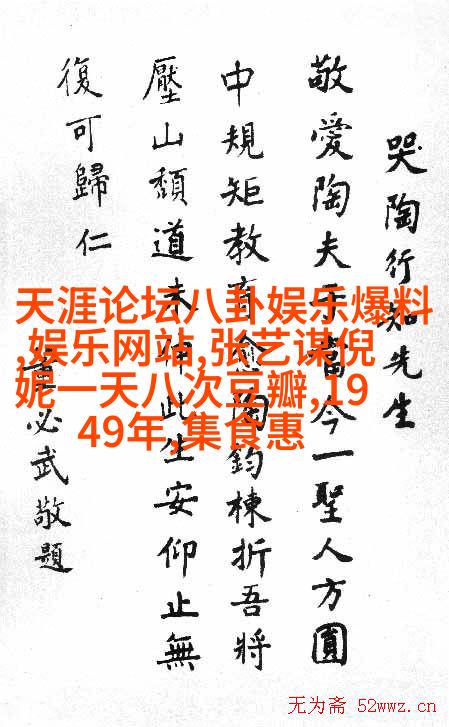 哭陶行知先生
敬愛陶夫子當今一聖人方圓
中規矩教育愈陶鈞棟折吾將
壓山頹道未伸此生安仰止無
復可歸仁
董必武敬題
天涯论坛八卦娱乐爆料
,娱乐网站,张艺谋倪
妮一天八次豆瓣,19
49年,集食惠
无为斋 52wwz.cn